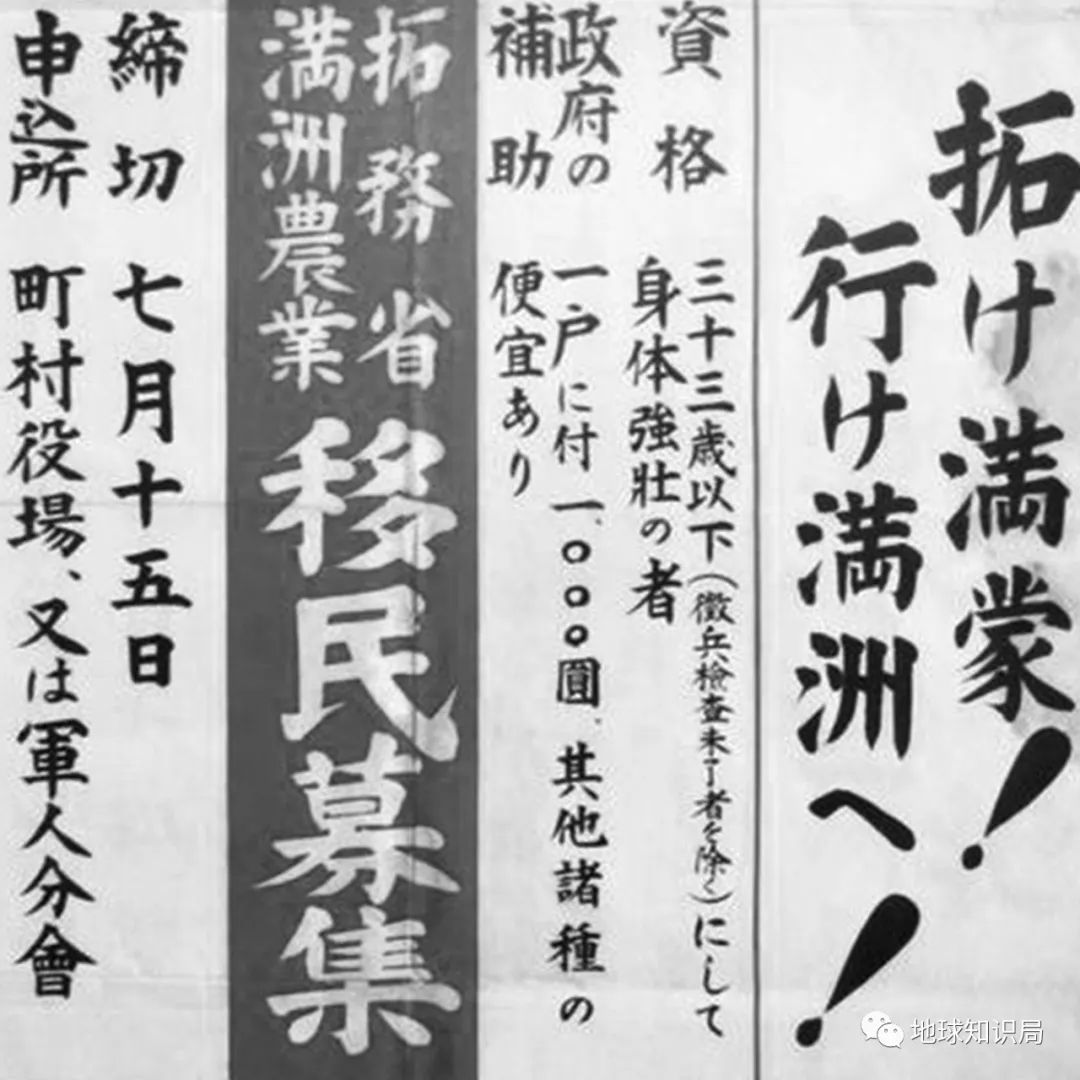 拓け満蒙！
行け満洲へ！
資格
三十三歳以下（徴兵檢査未了者を除く）にして
身体強壮の者
政府の
補助
一戸に付一、〇〇〇圓、其他諸種の
便宜あり
拓務省
満洲農業
移民募集
締切　七月十五日
申込所　町村役場、又は軍人分會
地球知识局